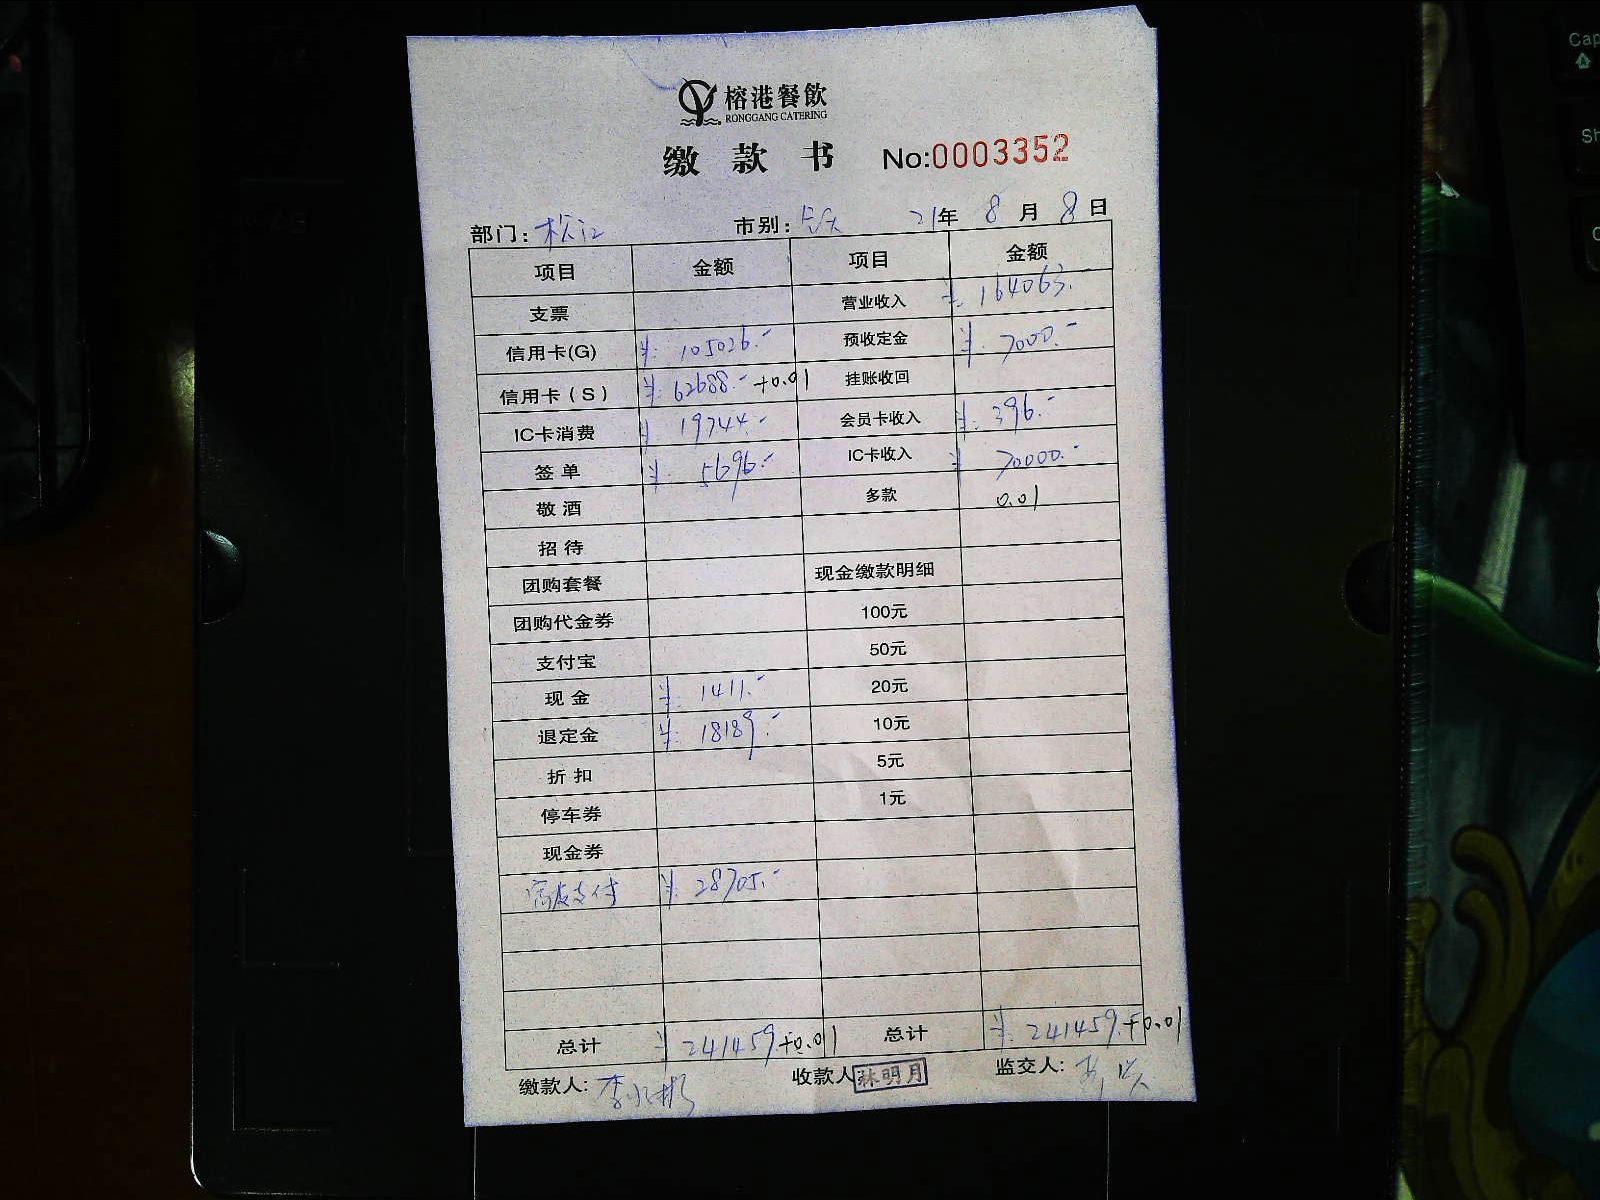 榕港餐飲
RONGGANG CATERING
缴款书 No:0003352
部门:松江 市别: 21年 8月 8日
项目 金额 项目 金额
支票 营业收入 ¥.164063.-
信用卡(G) ¥.105026.- 预收定金 ¥.7000.-
信用卡(S) ¥.62688.-+0.01 挂账收回
IC卡消费 ¥ 19744.- 会员卡收入 ¥.396.-
签单 ¥. 5696.- IC卡收入 ¥ 70000.-
敬酒 多款 0.01
招待
团购套餐 现金缴款明细
团购代金券 100元
支付宝 50元
现金 ¥.1411.- 20元
退定金 ¥.18189.- 10元
折扣 5元
停车券 1元
现金券
支付 ¥.28705.-
总计 ¥ 241459.+0.01 总计 ¥.241459.+0.01
缴款人: 收款人 林明月 监交人:
Cap
Sh